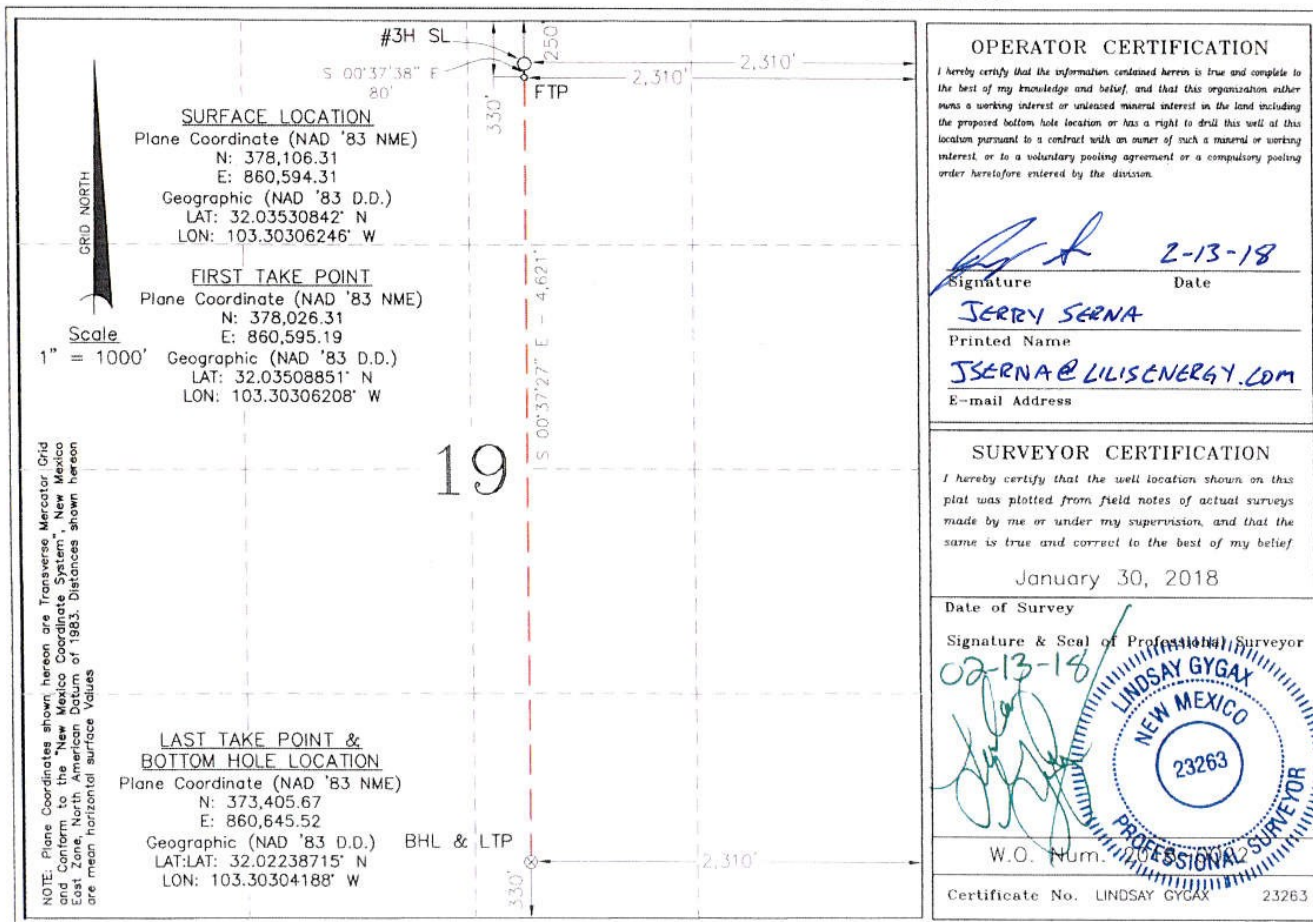 #3H SL
250'
2,310'
S 00°37'38" E
80'
2,310'
FTP
330'
SURFACE LOCATION
Plane Coordinate (NAD '83 NME)
N: 378,106.31
E: 860,594.31
Geographic (NAD '83 D.D.)
LAT: 32.03530842° N
LON: 103.30306246° W
GRID NORTH
FIRST TAKE POINT
Plane Coordinate (NAD '83 NME)
N: 378,026.31
E: 860,595.19
Geographic (NAD '83 D.D.)
LAT: 32.03508851° N
LON: 103.30306208° W
Scale
1" = 1000'
S 00°37'27" E – 4,621'
19
NOTE: Plane Coordinates shown hereon are Transverse Mercator Grid
and Conform to the "New Mexico Coordinate System", New Mexico
East Zone, North American Datum of 1983. Distances shown hereon
are mean horizontal surface Values
LAST TAKE POINT &
BOTTOM HOLE LOCATION
Plane Coordinate (NAD '83 NME)
N: 373,405.67
E: 860,645.52
Geographic (NAD '83 D.D.)
LAT:LAT: 32.02238715° N
LON: 103.30304188° W
BHL & LTP
2,310'
330'
OPERATOR CERTIFICATION
I hereby certify that the information contained herein is true and complete to
the best of my knowledge and belief, and that this organization either
owns a working interest or unleased mineral interest in the land including
the proposed bottom hole location or has a right to drill this well at this
location pursuant to a contract with an owner of such a mineral or working
interest, or to a voluntary pooling agreement or a compulsory pooling
order heretofore entered by the division.
2-13-18
Signature Date
JERRY SERNA
Printed Name
JSERNA@LILISENERGY.COM
E-mail Address
SURVEYOR CERTIFICATION
I hereby certify that the well location shown on this
plat was plotted from field notes of actual surveys
made by me or under my supervision, and that the
same is true and correct to the best of my belief.
January 30, 2018
Date of Survey
Signature & Seal of Professional Surveyor
02-13-18
LINDSAY GYGAX
NEW MEXICO
23263
PROFESSIONAL SURVEYOR
W.O. Num.
Certificate No. LINDSAY GYGAX 23263